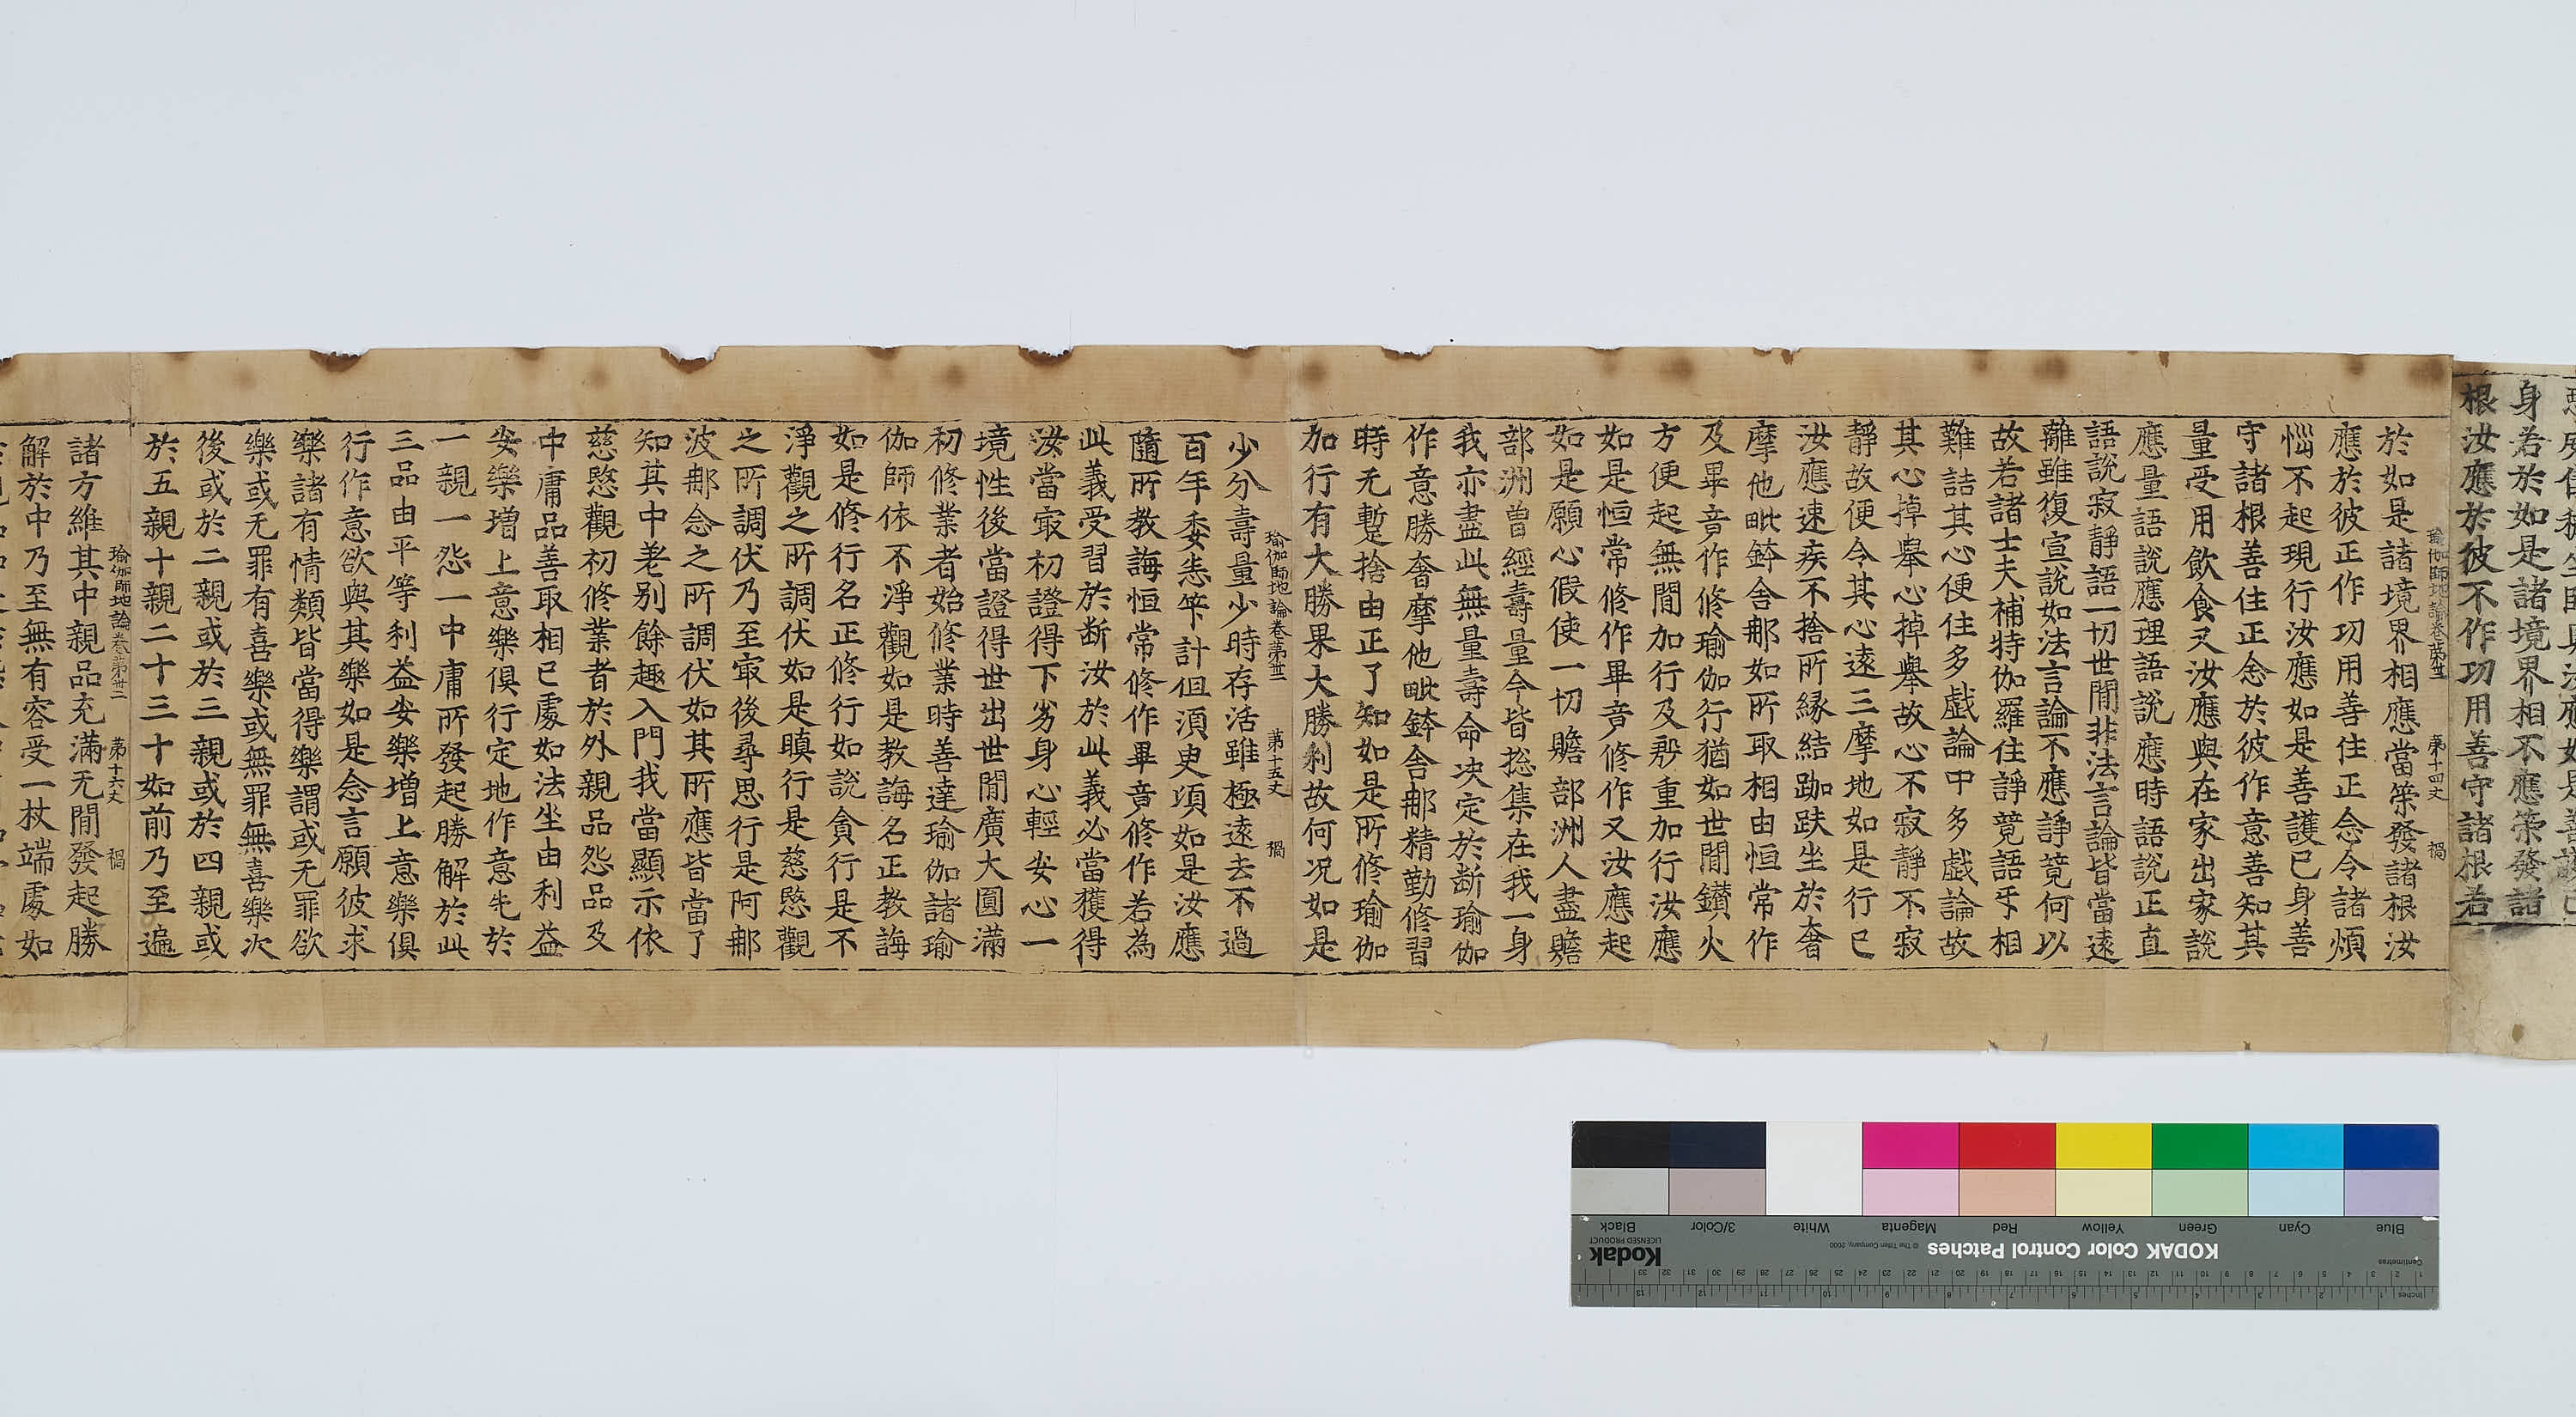 身若於如是諸境界相不應策發諸
根汝應於彼不作功用善守諸根若
瑜伽師地論卷第卅二 第十四丈 禍
於如是諸境界相應當策發諸根汝
應於彼正作功用善住正念令諸煩
惱不起現行汝應如是善護已身善
守諸根善住正念於彼作意善知其
量受用飲食又汝應與在家出家說
應量語說應理語說應時語說正直
語說寂靜語一切世閒非法言論皆當遠
離雖復宣說如法言論不應諍競何以
故若諸士夫補特伽羅住諍競語乎相
難詰其心便住多戱論中多戱論故
其心掉舉心掉舉故心不寂靜不寂
靜故便令其心遠三摩地如是行已
汝應速疾不捨所縁結跏趺坐於奢
摩他毗鉢舍那如所取相由恒常作
及畢竟作修瑜伽行猶如世閒鑚火
方便起無閒加行及殷重加行汝應
如是恒常修作畢竟修作又汝應起
如是願心假使一切贍部洲人盡贍
部洲曽經壽量今皆捴集在我一身
我亦盡此無量壽命决定於断瑜伽
作意勝奢摩他毗鉢舍那精勤修習
時无蹔捨由正了知如是所修瑜伽
加行有大勝果大勝利故何況如是
瑜伽師地論卷第卅二 第十五丈 禍
少分壽量少時存活雖極遠去不過
百年委悉筭計但須臾頃如是汝應
隨所教誨恒常修作畢竟修作若為
此義受習於断汝於此義必當獲得
汝當㝡初證得下劣身心輕安心一
境性後當證得世出世閒廣大圓滿
初修業者始修業時善達瑜伽諸瑜
伽師依不淨觀如是教誨名正教誨
如是修行名正修行如說貪行是不
淨觀之所調伏如是瞋行是慈愍觀
之所調伏乃至㝡後尋思行是阿那
波那念之所調伏如其所應皆當了
知其中差別餘趣入門我當顯示依
慈愍觀初修業者於外親品怨品及
中庸品善取相已處如法坐由利益
安樂增上意樂俱行定地作意先於
一親一怨一中庸所發起勝解於此
三品由平等利益安樂增上意樂俱
行作意欲與其樂如是念言願彼求
樂諸有情類皆當得樂謂或无罪欲
樂或无罪有喜樂或無罪無喜樂次
後或於二親或於三親或於四親或
於五親十親二十三十如前乃至遍
瑜伽師地論卷第卅二 第十六丈 禍
諸方維其中親品充滿无閒發起勝
解於中乃至無有容受一杖端處如